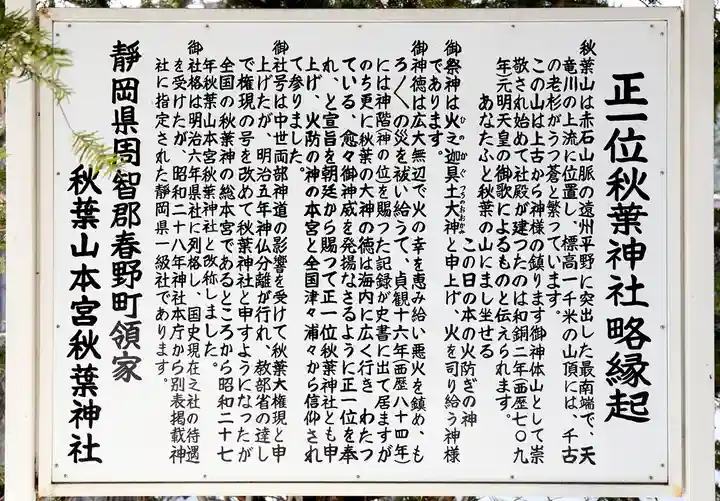 正一位秋葉神社略縁起
秋葉山は赤石山脈の遠州平野に突出した最南端で、天
竜川の上流に位置し、標高一千米の山頂には、千古
の老杉がうっ蒼と繁っています。
この山は上古から神様の鎮ります御神体山として崇
敬され始めて社殿が建つたのは和銅二年(西歴七〇九
年)元明天皇の御歌によるものと伝えられます。
あなたふと秋葉の山にまし坐せる
この日の本の火防ぎの神
御祭神は火之迦具土大神と申上げ、火を司り給う神様
であります。
御神徳は広大無辺で火の幸を恵み給い悪火を鎮め、も
ろ〱の災を祓い給うて、貞観十六年(西歴八十四年)
には神階(神の位)を賜った記録が史書に出て居ますが
のち更に秋葉の大神の徳は海内に広く行き わたつ
ている、愈々御神威を発揚なさるように正一位を奉
れ、と宣旨を朝廷から賜つて正一位秋葉神社とも申
上げ、火防の神の本宮と全国津々浦々から信仰され
て参りました。
御社号は中世両部神道の影響を受けて秋葉大権現と申
上げたが、明治五年神仏分離が行れ、教部省の達し
で権現の号を改めて秋葉神社と申すようになったが
全国の秋葉神の総本宮であるところから昭和二十七
年秋葉山本宮秋葉神社と改称しました。
御社格は明治六年県社に列格し、国史現在之社の待遇
を受けたが、昭和二十八年神社本庁から別表掲載神
社に指定された静岡県一級社であります。
静岡県周智郡春野町領家
秋葉山本宮秋葉神社